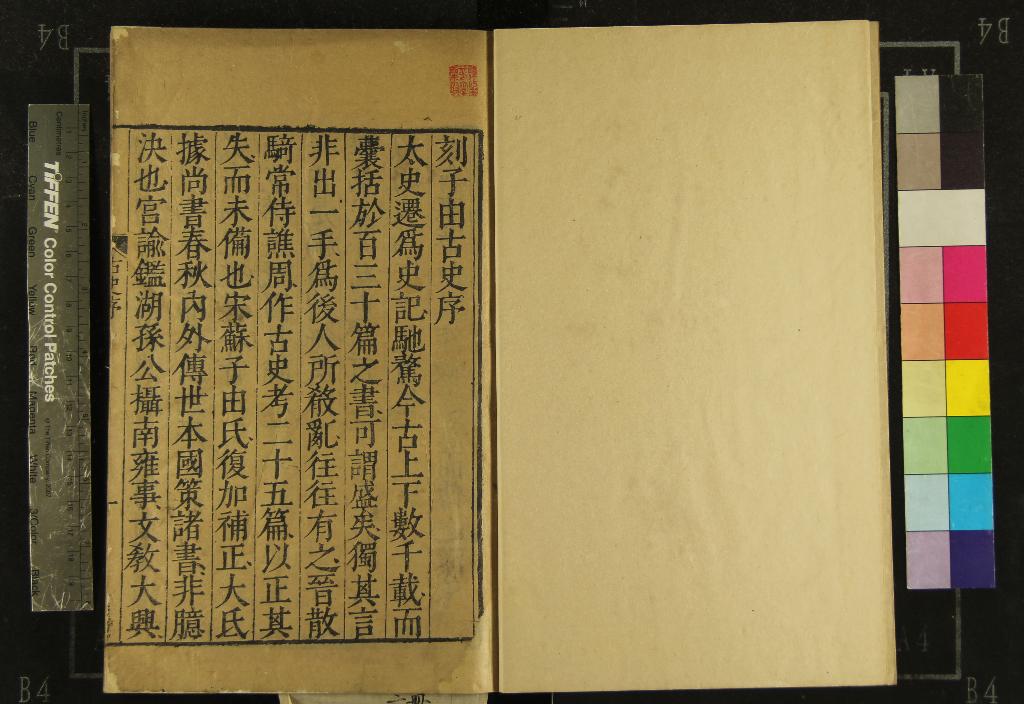 刻子由古史序
太史遷爲史記馳騖今古上下數千載而
囊括於百三十篇之書可謂盛矣獨其言
非出一手爲後人所殽亂往往有之晉散
騎常侍譙周作古史考二十五篇以正其
失而未備也宋蘇子由氏復加補正大氐
據尚書春秋內外傳世本國策諸書非臆
決也官諭鑑湖孫公攝南雍事文敎大興
古史序
一
TIFFEN Color Control Patches
Centimetres
Inches
Blue
Cyan
Green
Yellow
Red
Magenta
White
3/Color
Black
B4
B4
B4
B4
A4